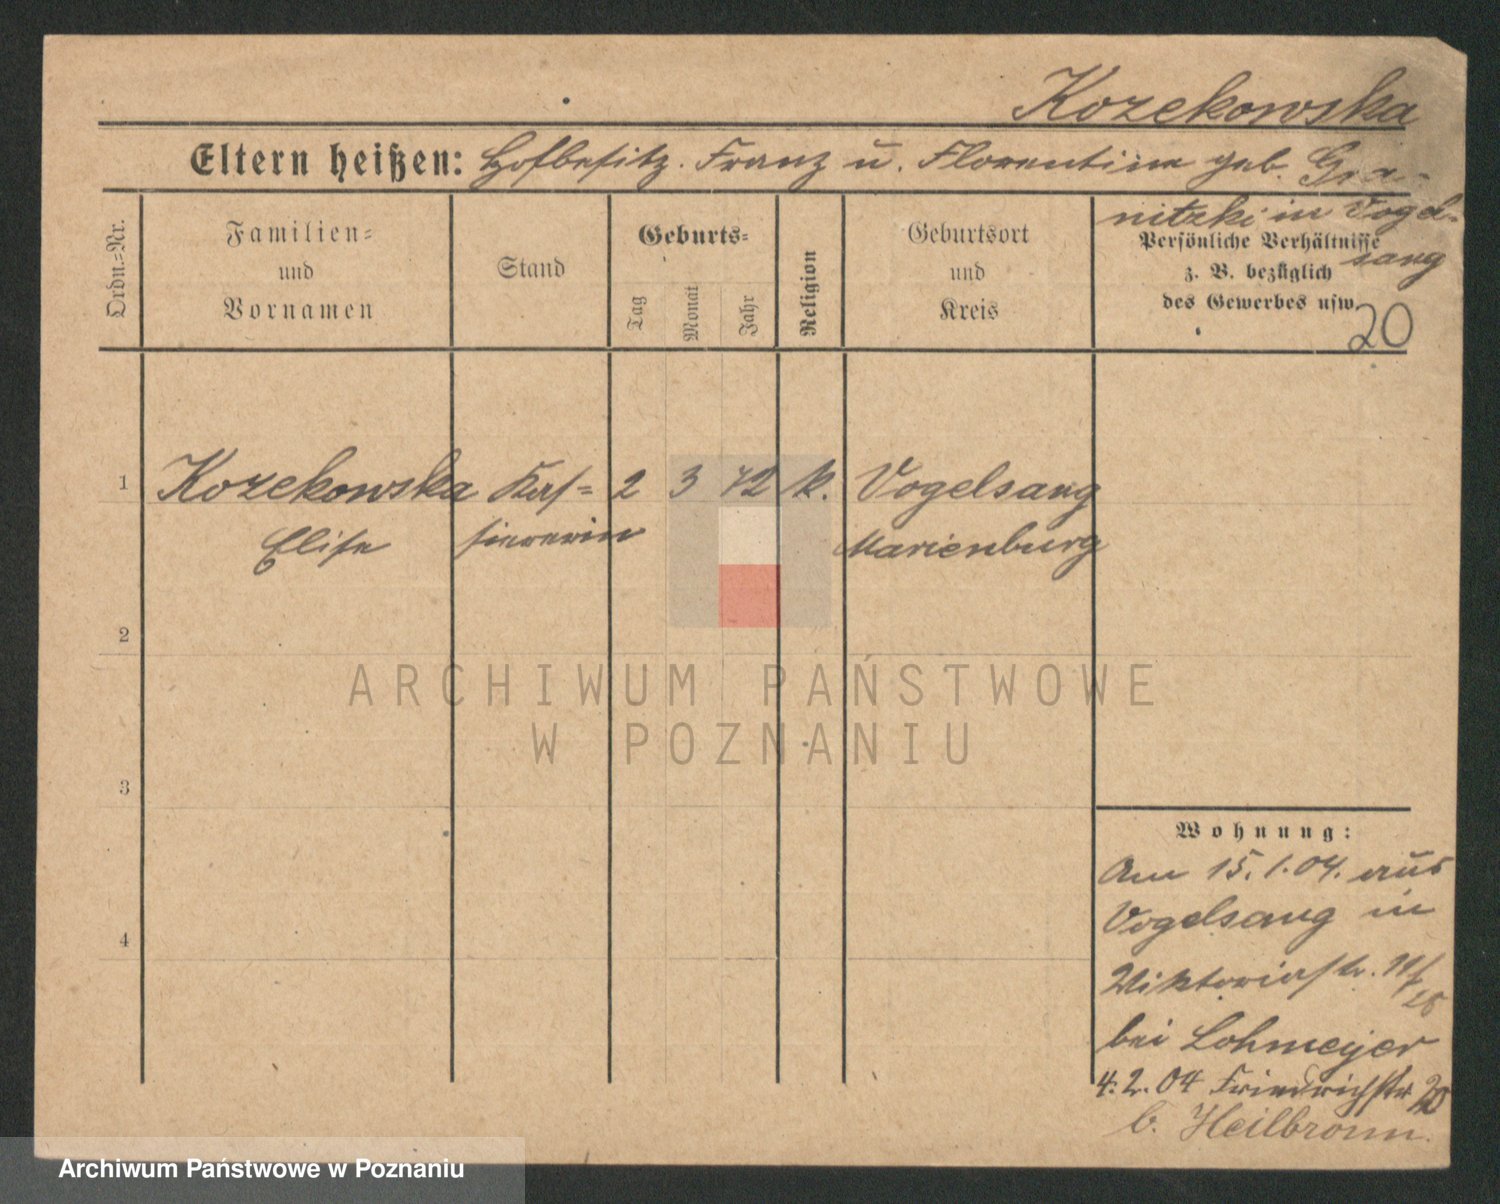 Kozekowska
Eltern heißen: Hofbesitz. Franz u. Florentine geb. Gra-
nitzki in Vogel-
sang
Ordn.=Nr.
Familien=
und
Vornamen
Stand
Geburts=
Tag
Monat
Jahr
Religion
Geburtsort
und
Kreis
Persönliche Verhältnisse
z. B. bezüglich
des Gewerbes usw.
20
1 Kozekowska Kas= 2 3 72 k. Vogelsang
Elise siererin Marienburg
2
3
4
ARCHIWUM PAŃSTWOWE
W POZNANIU
Wohnung:
Am 15.1.04. aus
Vogelsang in
Viktoriastr.
bei Lohmeyer
4.2.04 Friedrichstr 20
b. Heilbronn.
Archiwum Państwowe w Poznaniu